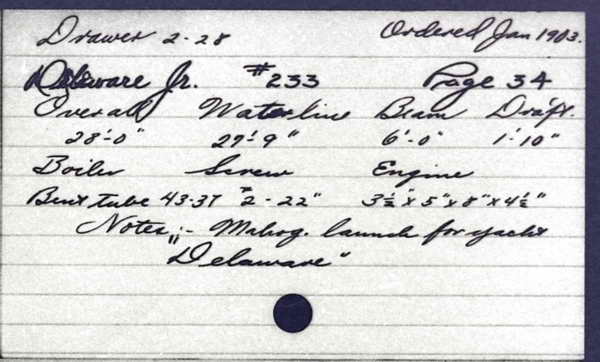 Drawer 2-28 Ordered Jan 1903.
Delaware Jr. #233 Page 34
Overall Waterline Beam Draft.
28'-0" 27'-9" 6'-0" 1'-10"
Boiler Screw Engine
Bent tube 43-37 #2-22" 3½"x5"x8"x4½"
Notes:- Mahog. launch for yacht
"Delaware"